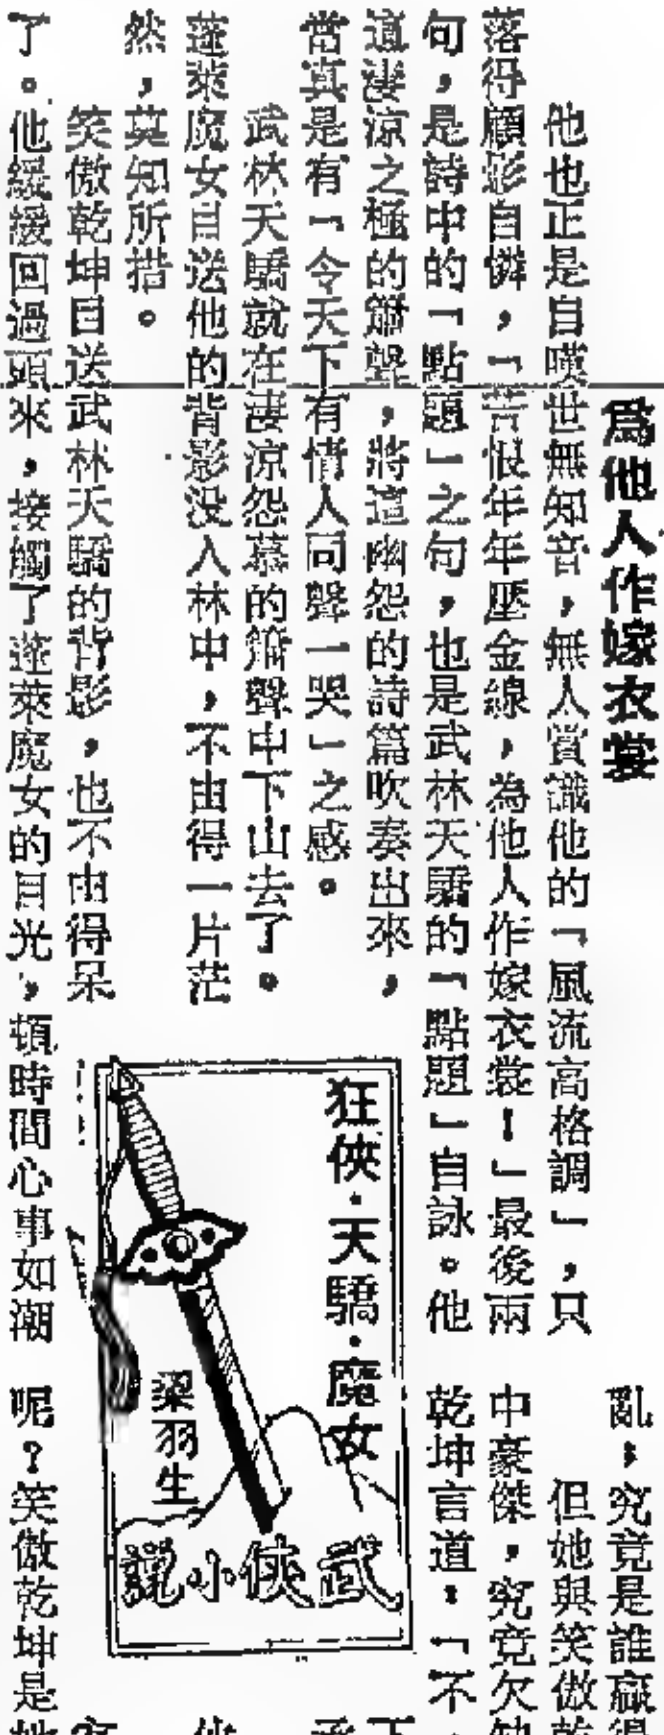 為他人作嫁衣裳
他也正是自嘆世無知音，無人賞識他的「風流高格調」，只
落得顧影自憐，「苦恨年年壓金線，為他人作嫁衣裳！」最後兩
句，是詩中的「點題」之句，也是武林天驕的「點題」自詠。他
這淒涼之極的簫聲，將這幽怨的詩篇吹奏出來，
當真是有「令天下有情人同聲一哭」之感。
武林天驕就在淒涼怨慕的簫聲中下山去了。
蓬萊魔女目送他的背影沒入林中，不由得一片茫
然，莫知所措。
笑傲乾坤目送武林天驕的背影，也不由得呆
了。他緩緩回過頭來，接觸了蓬萊魔女的目光，頓時間心事如潮
狂俠·天驕·魔女
梁羽生
武俠小說
亂，究竟是誰贏得
但她與笑傲乾
中豪傑，究竟欠缺
乾坤言道：「不
呢？笑傲乾坤是她